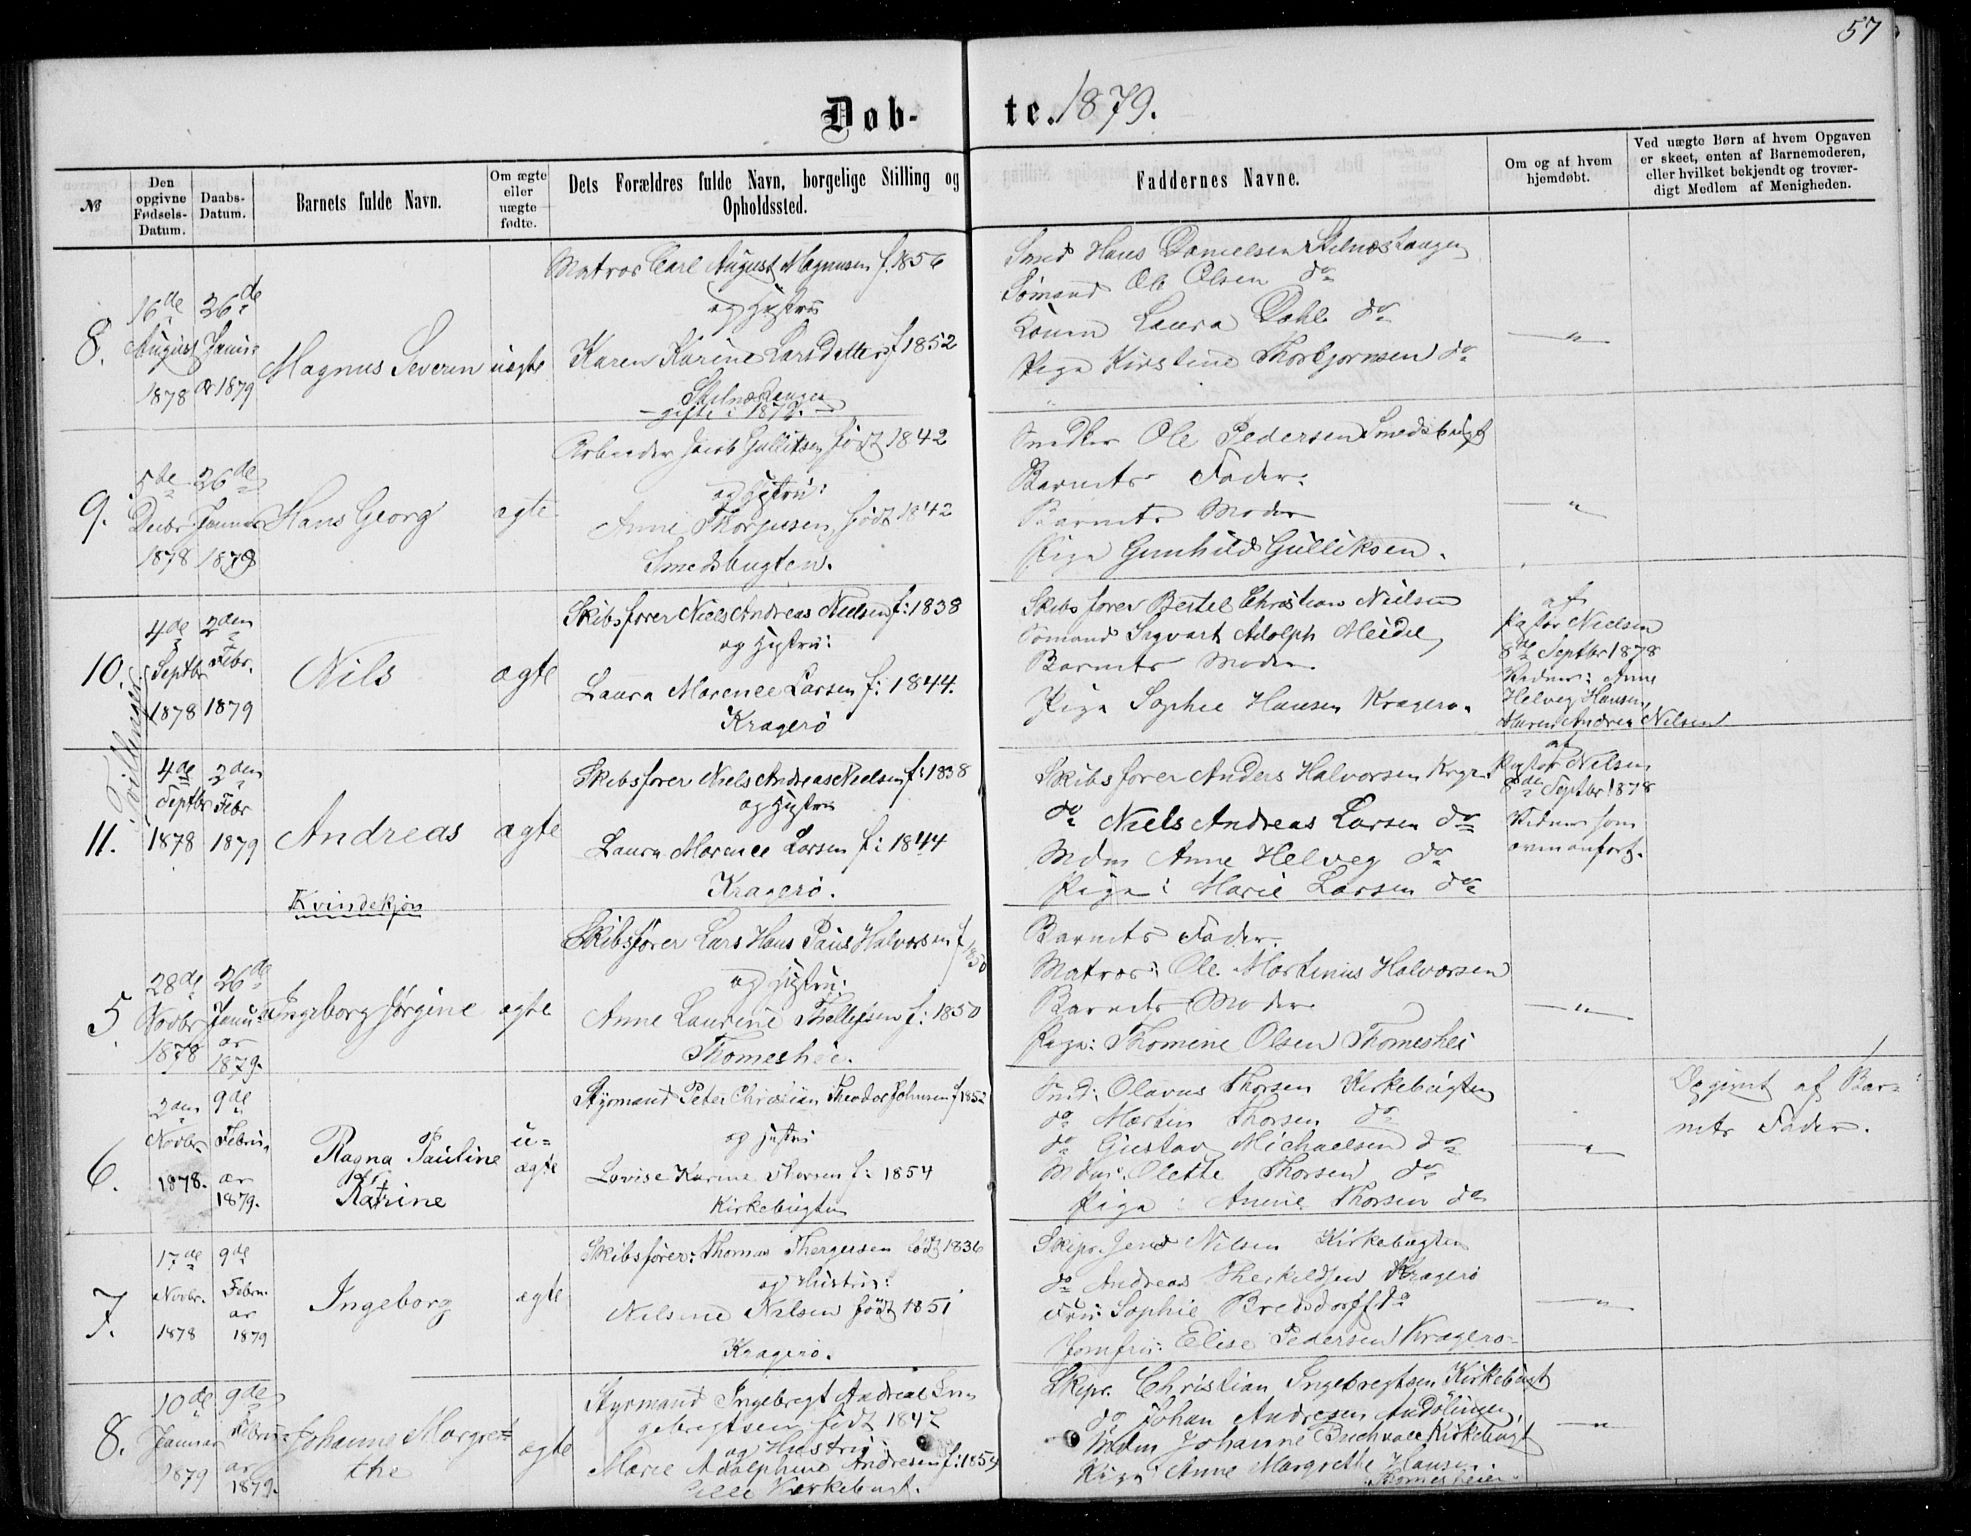 57
Døb- te. 1879.
№
Den opgivne Fødsels-Datum.
Daabs-Datum.
Barnets fulde Navn.
Om ægte eller uægte fødte.
Dets Forældres fulde Navn, borgelige Stilling og Opholdssted.
Faddernes Navne.
Om og af hvem hjemdøbt.
Ved uægte Børn af hvem Opgaven er skeet, enten af Barnemoderen, eller hvilket bekjendt og troværdigt Medlem af Menigheden.
8.
16de August 1878
26de Januar 1879
Magnus Severin
uægte
Matros Carl August Magnusen f. 1856
og Hustru
Karen Karine Larsdatter f 1852
gifte i 1879.
Smed Hans Danielsen
Sømand Ole Olsen do
Konen Laura Dahl do
Pige Kirstine Thorbjørnsen do
— " —
9.
5de Decbr 1878
26de Januar 1879
Hans Georg
ægte
Arbeider Jacob Gulliksen født 1842
og Hustru:
Anne Thorjusen født 1842
Smedsbugten.
Snedker Ole Pedersen Smedsbugt
Barnets Fader.
Barnets Moder
Pige Gunhild Gulliksen.
— " —
10.
Tvillinger
4de Septbr 1878
2den Febr. 1879
Nils
ægte
Skibsfører Niels Andreas Nielsen f: 1838
og Hustru:
Laura Marence Larsen f: 1844.
Kragerø
Skibsfører Bertel Christian Nielsen
Sømand Sigvart Adolph Meidel
Barnets Moder
Pige Sophie Hansen Kragerø.
af
Pastor Nielsen
8de Septbr 1878
Vidner: Anne
Helveg Hansen,
Maren Andrea Nilsen
11.
4de Septbr 1878
2den Febr 1879
Andreas
ægte
Skibsfører Niels Andreas Nielsen f: 1838
og Hustru
Laura Marence Larsen f: 1844
Kragerø.
Skibsfører Anders Halvorsen Krgr.
do Niels Andreas Larsen do
Mdm Anne Helveg do
Pige: Marie Larsen do
af
Pastor Nielsen
8de Septbr 1878
Vidner som
ovenanført.
Kvindekjøn
5
28de Novbr 1878
26de Januar 1879.
Ingeborg Jørgine
ægte
Skibsfører Lars Hans Paus Halvorsen f 1850
og Hustru:
Anne Laurine Thellefsen f: 1850
Thomeshei.
Barnets Fader.
Matros: Ole Martinius Halvorsen
Barnets Moder
Pige: Thomine Olsen Thomeshei
— " —
6.
2den Novbr 1878.
9de Februar 1879.
Ragna Pauline
Katrine
u=ægte
Styrmand Peter Christian Theodor Johnsen f 1852
og Hustru
Lovise Karine Thorsen f: 1854
Kirkebugten
Smd: Olavus Thorsen Kirkebugten
do Martin Thorsen do
do Gustav Michaelsen do
Mdm: Olette Thorsen do
Pige: Annie Thorsen do
— " —
Opgivet af Barnets Fader.
7.
17de Novbr. 1878
9de Februar 1879
Ingeborg
ægte
Skibsfører: Thomas Thergersen født 1836
og Hustru:
Nilsine Nilsen født 1851
Kragerø.
Skipr. Jens Nilsen Kirkebugten
do Andreas Therkildsen Kragerø
Fru: Sophie Bredsdorff do
Jomfru: Elise Pedersen Kragerø
— " —
8.
10de Januar 1879
9de Februar 1879.
Johanne Margrethe
ægte
Styrmand Ingebregt Andreas Ingebregtsen født 1847
og Hustru
Marie Adolphine Andresen f: 1854
Kirkebugt.
Skipr. Christian Ingebregtsen Kirkebugt
do Johan Andresen
Mdm Johanne Buchvall Kirkebugt
Pige Anne Margrethe Hansen
Thomesheien
— " —